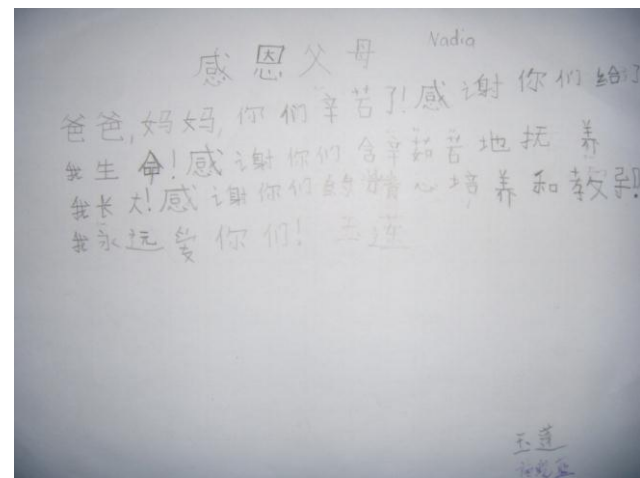 感恩父母 Nadia
爸爸,妈妈,你们辛苦了!感谢你们给了
我生命!感谢你们含辛茹苦地抚养
我长大!感谢你们的精心培养和教导!
我永远爱你们! 玉莲
玉莲